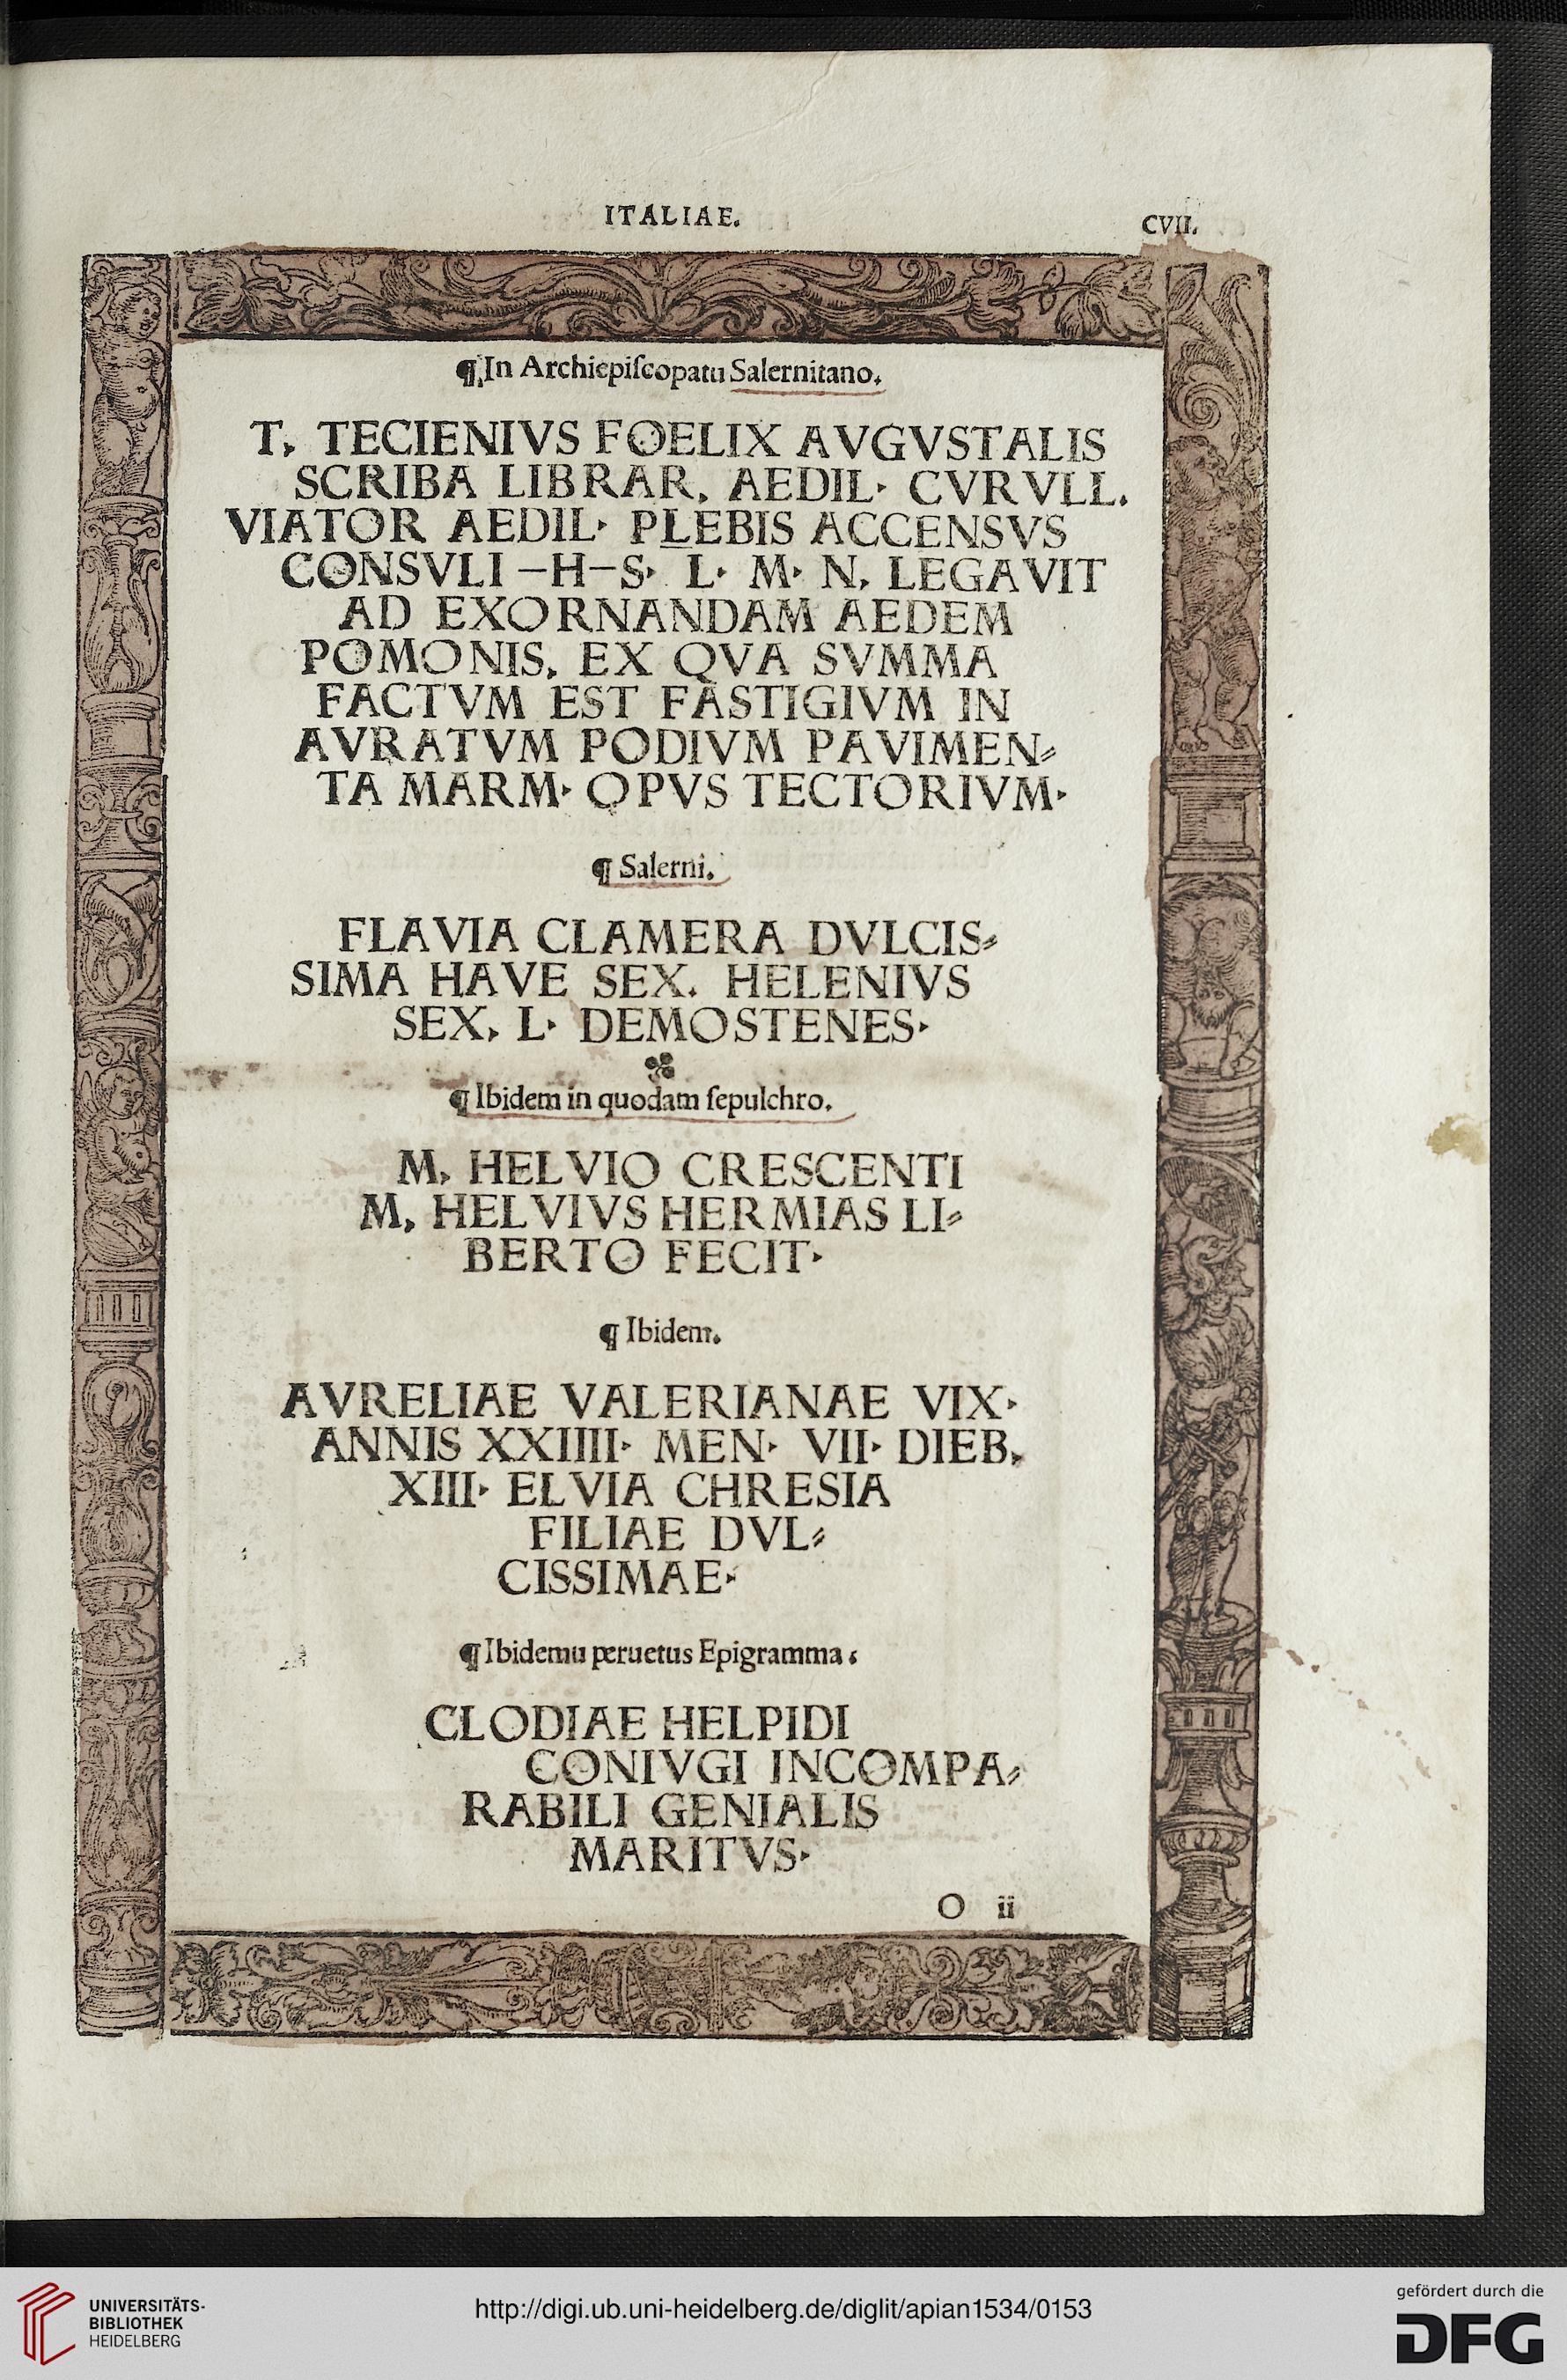 ITALIAE.
CVII.
¶ In Archiepiſcopatu Salernitano.
T. TECIENIVS FOELIX AVGVSTALIS
SCRIBA LIBRAR. AEDIL· CVRVLL.
VIATOR AEDIL· PLEBIS ACCENSVS
CONSVLI –H–S· L· M· N. LEGAVIT
AD EXORNANDAM AEDEM
POMONIS. EX QVA SVMMA
FACTVM EST FASTIGIVM IN
AVRATVM PODIVM PAVIMEN⸗
TA MARM· OPVS TECTORIVM·
¶ Salerni.
FLAVIA CLAMERA DVLCIS⸗
SIMA HAVE SEX. HELENIVS
SEX. L· DEMOSTENES·
¶ Ibidem in quodam ſepulchro.
M. HELVIO CRESCENTI
M. HELVIVS HERMIAS LI⸗
BERTO FECIT·
¶ Ibidem.
AVRELIAE VALERIANAE VIX·
ANNIS XXIIII· MEN· VII· DIEB.
XIII· ELVIA CHRESIA
FILIAE DVL⸗
CISSIMAE·
¶ Ibidemu peruetus Epigramma.
CLODIAE HELPIDI
CONIVGI INCOMPA⸗
RABILI GENIALIS
MARITVS·
O ii
UNIVERSITÄTS-
BIBLIOTHEK
HEIDELBERG
http://digi.ub.uni-heidelberg.de/diglit/apian1534/0153
gefördert durch die
DFG